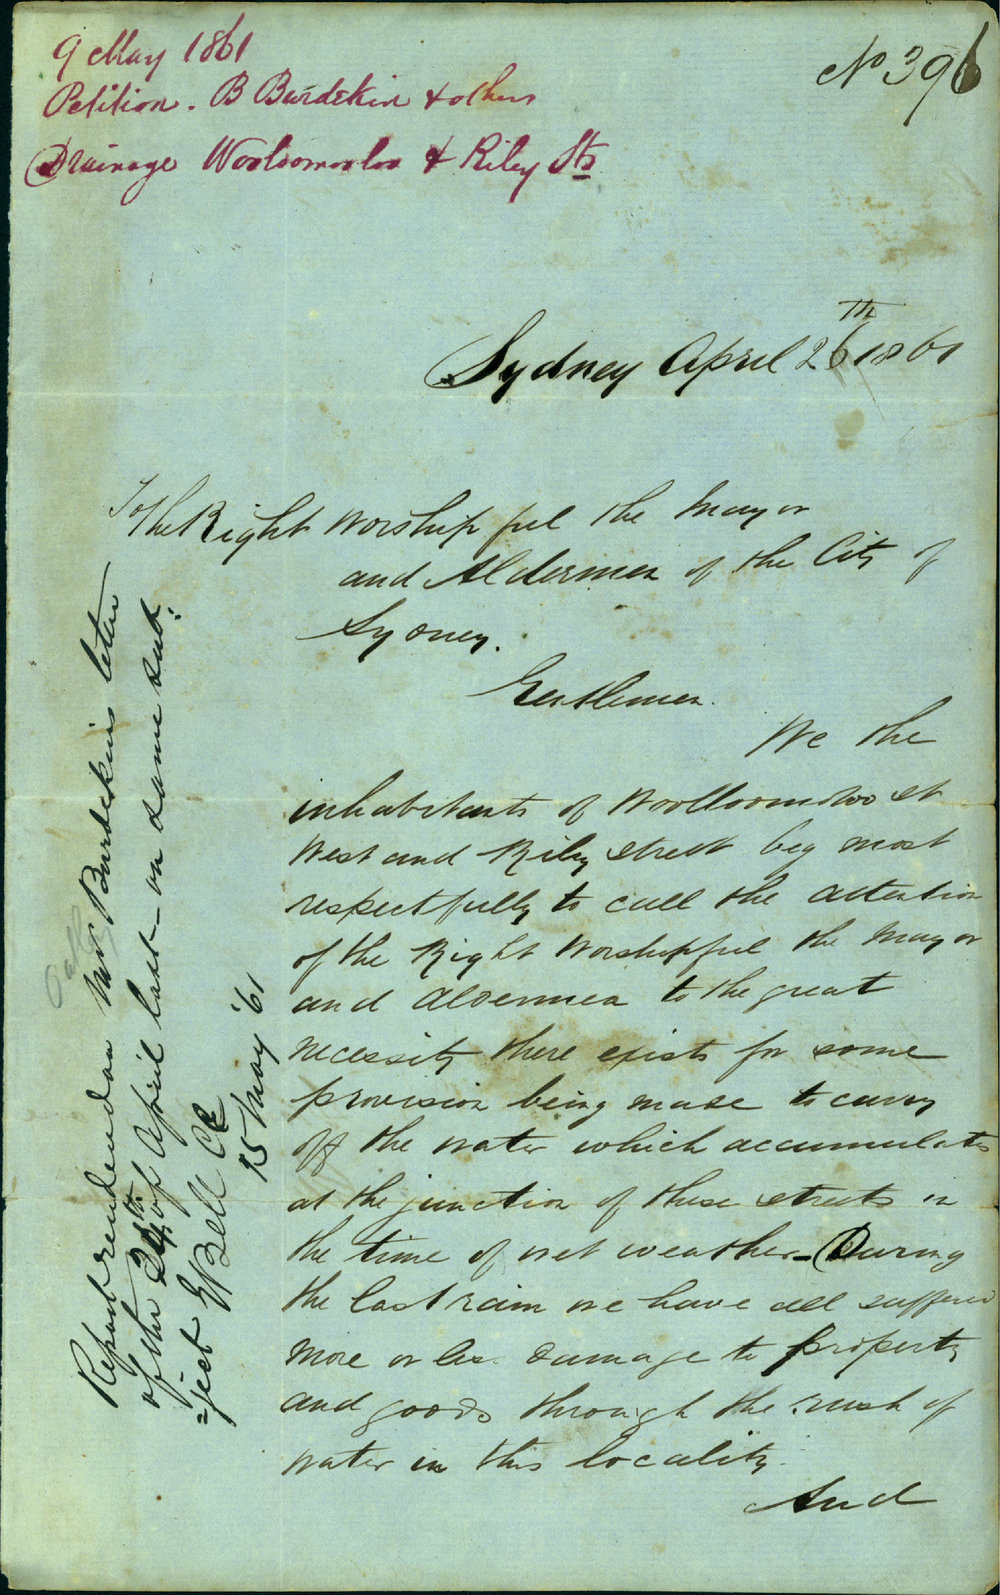 9 May 1861
Petition. B Burdekin & others
Drainage Woolloomooloo & Riley Sts
No 396
Sydney April 26th 1861
To the Right Worshipful the Mayor
and Aldermen of the City of
Sydney.
Gentlemen.
We the
inhabitants of Woolloomooloo St
West and Riley Street beg most
respectfully to call the attention
of the Right Worshipful the Mayor
and Aldermen to the great
necessity there exists for some
provision being made to carry
off the water which accumulates
at the junction of these streets in
the time of wet weather - During
the last rain we have all suffered
more or less damage to property
and goods through the rush of
water in this locality.
And
Report rendered on Mr Burdekins letter
of the 24th of April last - on same sub:
=ject EBell CE
15 May '61